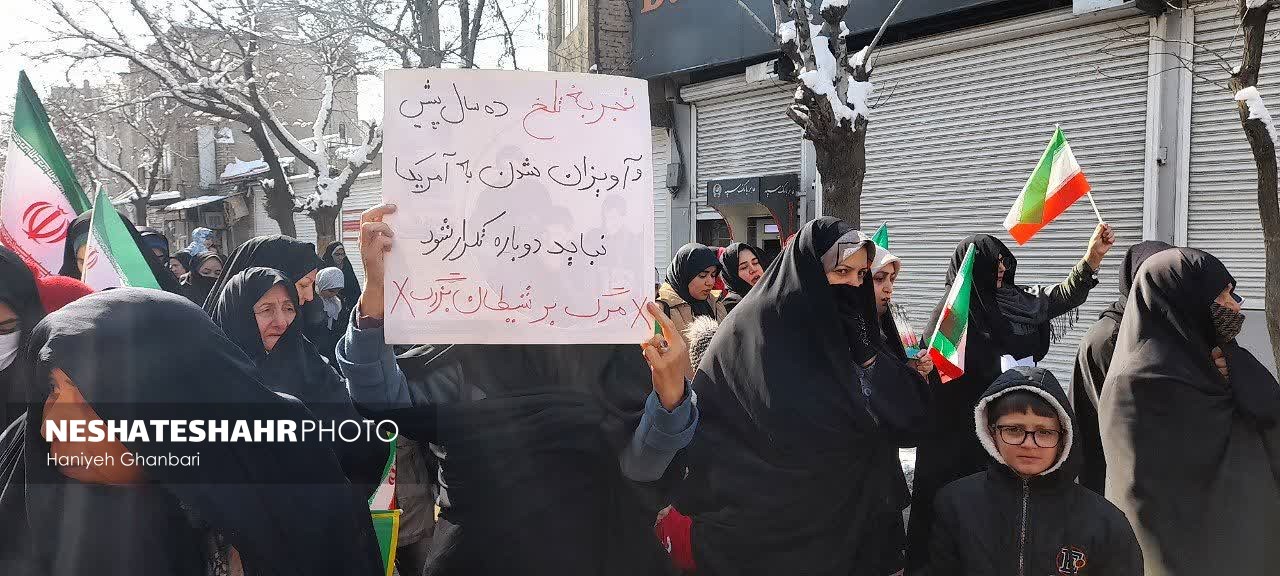 تجربه تلخ ده سال پیش
و آویزان شدن به آمریکا
نباید دوباره تکرار شود
X مرگ بر شیطان بزرگ X
NESHATESHAHRPHOTO
Haniyeh Ghanbari